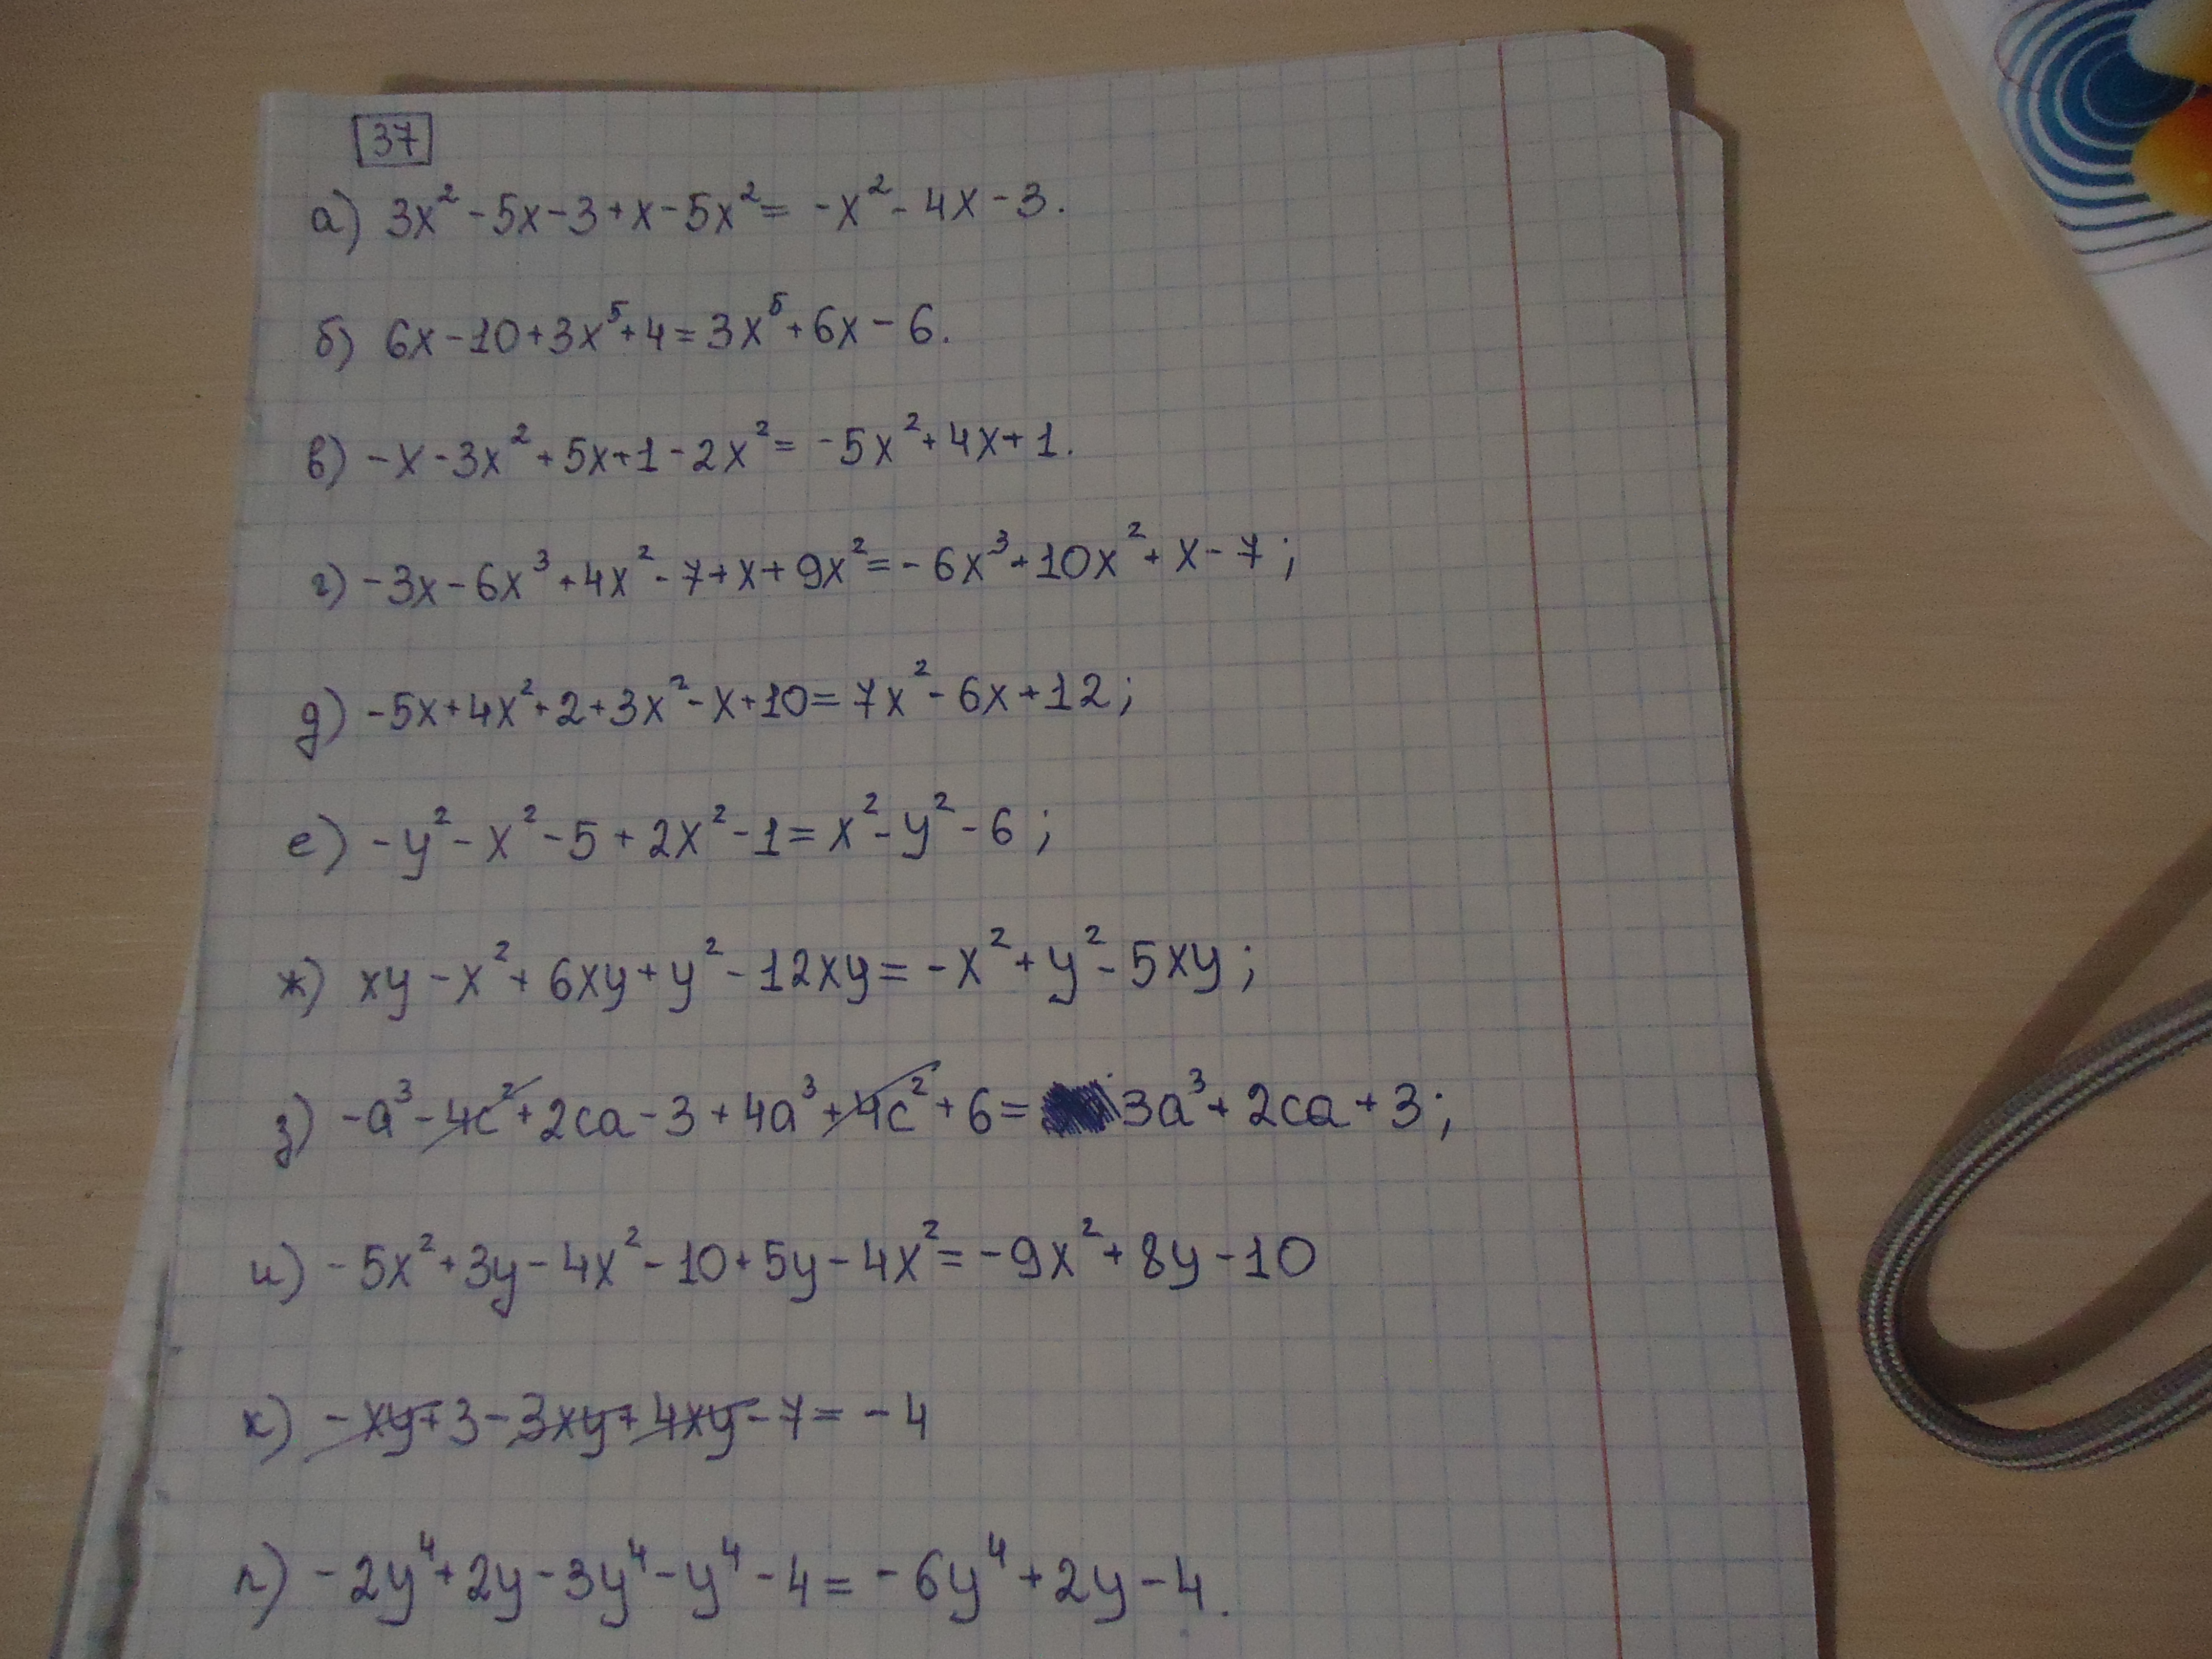 37
а) 3x² - 5x - 3 + x - 5x² = -x² - 4x - 3.
б) 6x - 10 + 3x⁵ + 4 = 3x⁵ + 6x - 6.
в) -x - 3x² + 5x + 1 - 2x² = -5x² + 4x + 1.
г) -3x - 6x³ + 4x² - 7 + x + 9x² = -6x³ + 10x² + x - 7;
д) -5x + 4x² + 2 + 3x² - x + 10 = 7x² - 6x + 12;
е) -y² - x² - 5 + 2x² - 1 = x² - y² - 6;
ж) xy - x² + 6xy + y² - 12xy = -x² + y² - 5xy;
з) -a³ - 4c² + 2ca - 3 + 4a³ + 4c² + 6 = 3a³ + 2ca + 3;
и) -5x² + 3y - 4x² - 10 + 5y - 4x² = -9x² + 8y - 10
к) -xy + 3 - 3xy + 4xy - 7 = -4
л) -2y⁴ + 2y - 3y⁴ - y⁴ - 4 = -6y⁴ + 2y - 4.